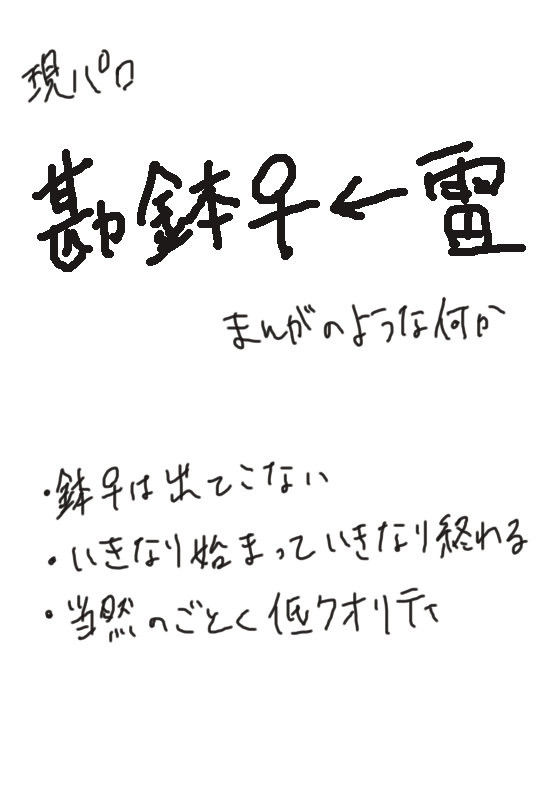 現パロ
勘鉢♀←雷
まんがのような何か
・鉢♀は出てこない
・いきなり始まっていきなり終わる
・当然のごとく低クオリティ